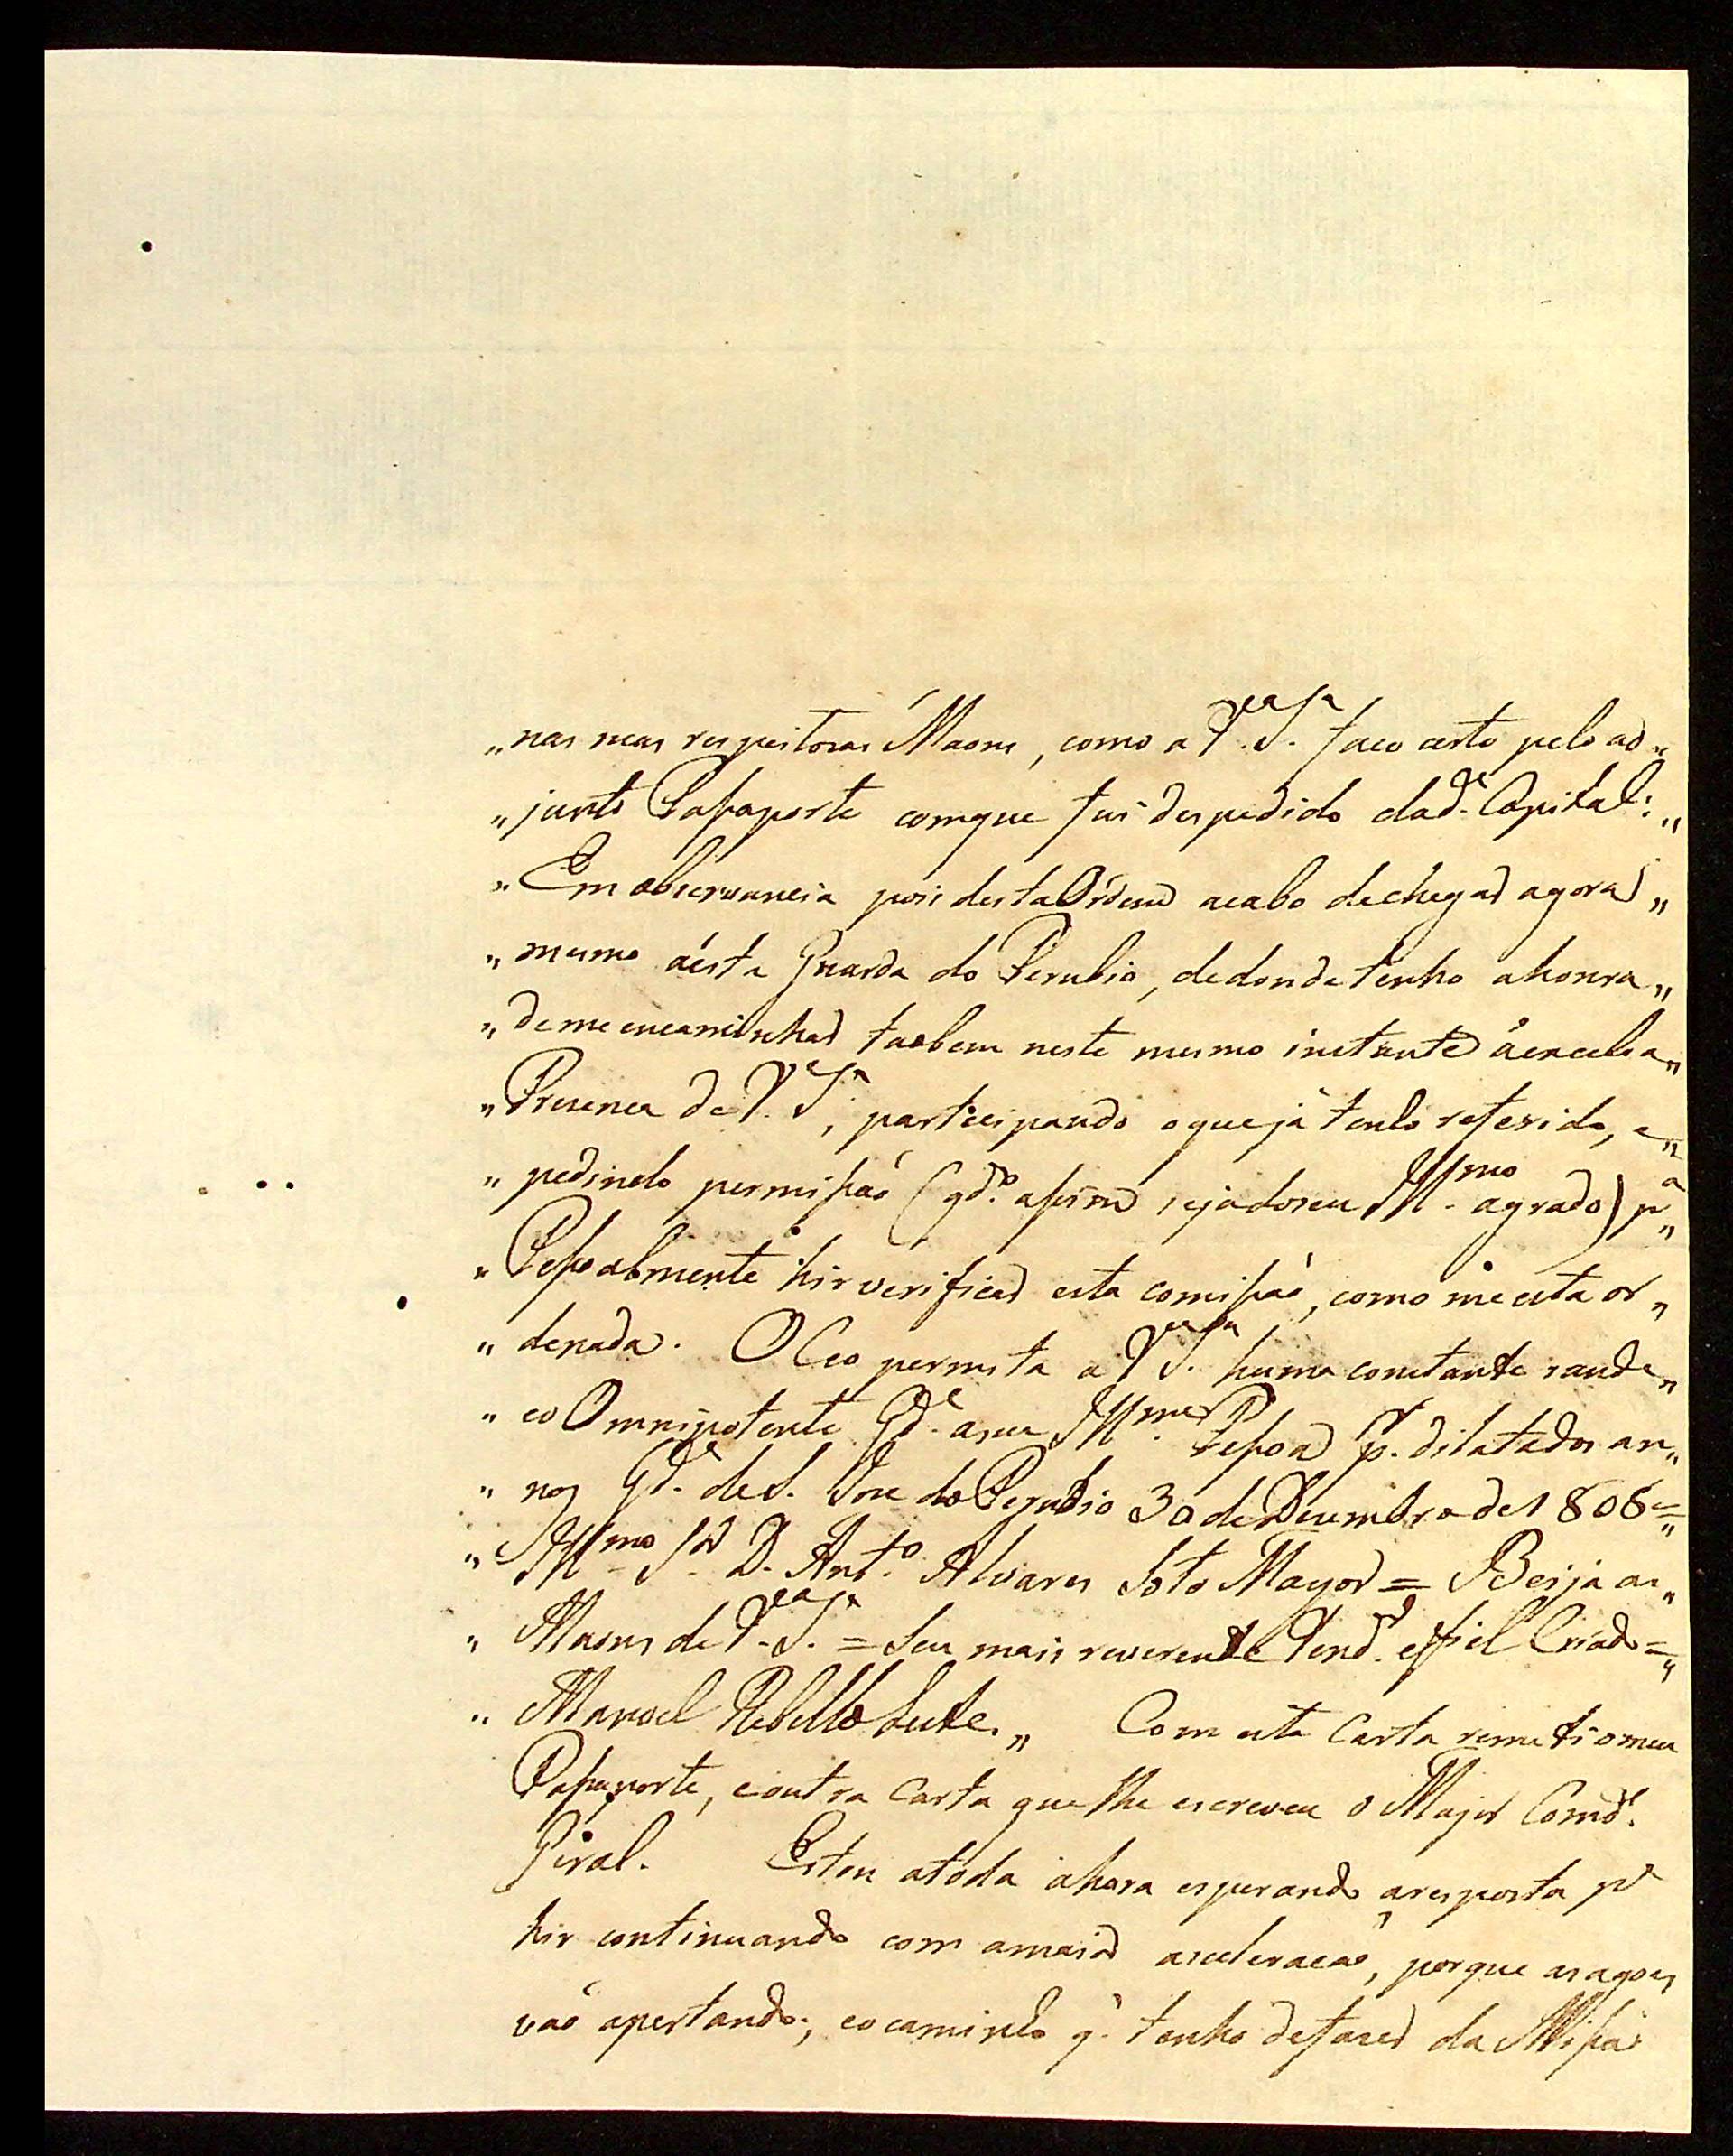 „nas suas respeitosas Maons, como a V.ª S.ª faço certo pelo ad„
„junto Passaporte comque fui despedido dad.ª Capital:„
„Em observancia pois desta Ordem acabo dechegar agora„
„mesmo aésta Guarda do Serubio, dedonde tenho ahonra„
„demeencaminhar taobem neste mesmo instante áexcelsa„
„Presença de V. S.ª, participando oquejá tenho referido, e„
„pedindo permissaõ (qd.º assim sejadoseu Ill.mo agrado) p.ª„
„Pessoalmente hir verificar esta comissaõ, como meésta or„
„denada. OCeo permita a V.ª S.ª huma constante saude„
„eo Omnipotente G.de aseu Ill.me Pessoa p.r dilatados an„
„nos G.da de S. Jose do Serubio 30 deDezembro de1808=„
„Ill.mo S.r D. Ant.º Alvares Soto Mayor = Beija as„
„Maons de V.ª S.ª = Seu mais reverente Vend.or efiel Criado=„
„Manoel Rebello Leite.„ Com esta Carta remeti omeu
Passaporte, eoutra Carta quelhe escreveu o Major Comd.e
Geral. Estou atoda ahora esperando aresposta p.ª
hir continuando com amaior aceleraçaõ, porque asagoas
vaõ apertando; eocaminho q.e tenho defazer da Missaõ